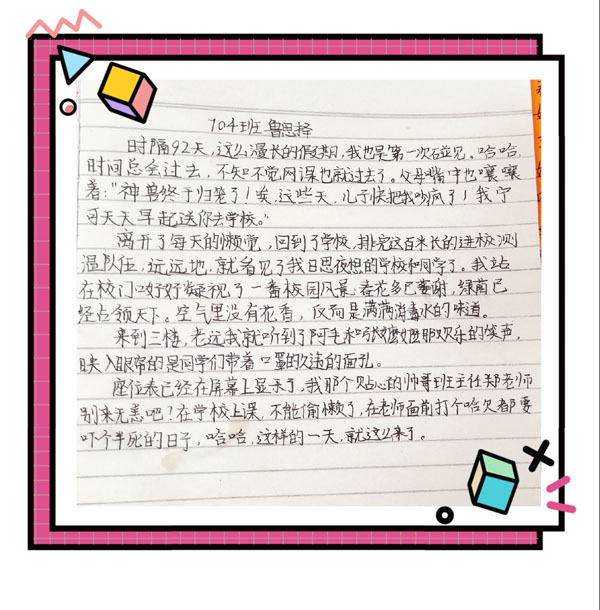 704班 鲁思择
时隔92天,这么漫长的假期,我也是第一次碰见。哈哈,
时间总会过去,不知不觉网课也就过去了。父母嘴中也嚷嚷
着:"神兽终于归笼了!唉,这些天,儿子快把我吵疯了!我宁
可天天早起送你去学校。"
离开了每天的懒觉,回到了学校,排完这百米长的进校测
温队伍,远远地,就看见了我日思夜想的学校和同学了。我站
在校门口好好凝视了一番校园风景:春花多已萎谢,绿荫已
经占领天下。空气里没有花香,反而是满满消毒水的味道。
来到三楼,老远我就听到了阿毛和欢乐的笑声,
映入眼帘的是同学们带着口罩的久违的面孔。
座位表已经在屏幕上显示了,我那个贴心的帅哥班主任郑老师
别来无恙吧?在学校上课,不能偷懒了,在老师面前打个哈欠都要
吓个半死的日子,哈哈,这样的一天,就这么来了。